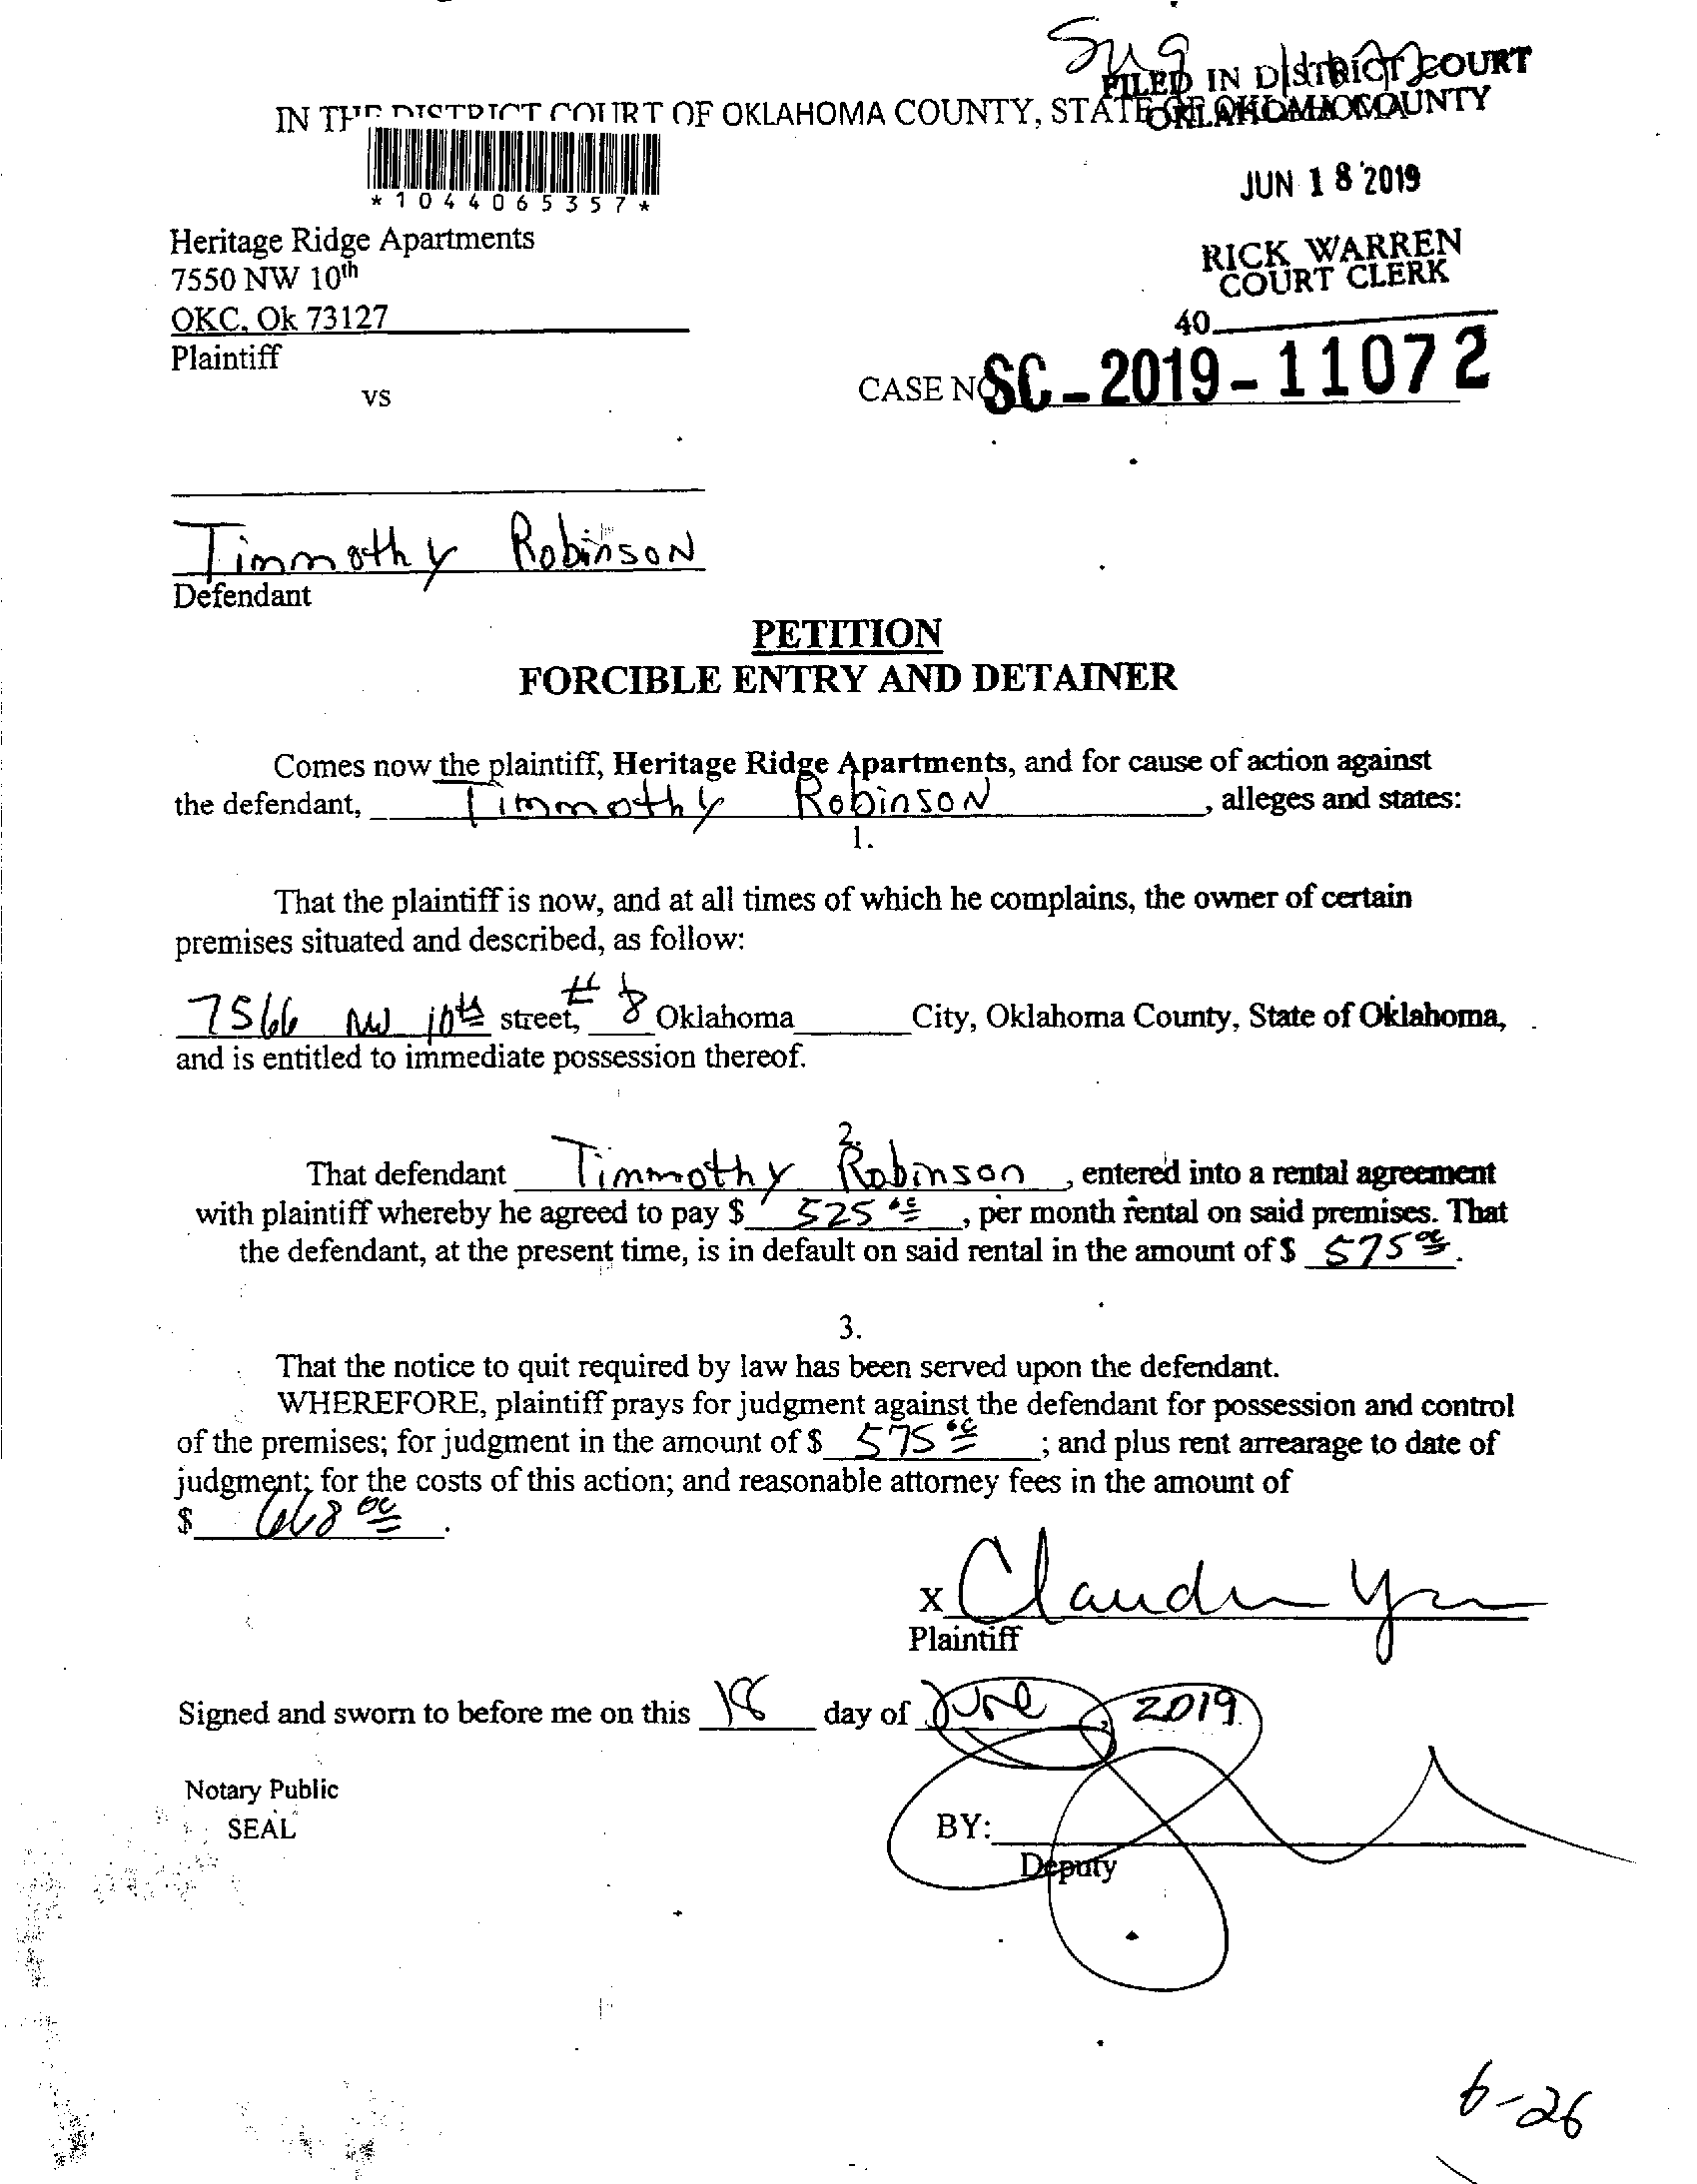 FILED IN DISTRICT COURT
IN THE DISTRICT COURT OF OKLAHOMA COUNTY, STATE OF OKLAHOMA
OKLAHOMA COUNTY
*1044065357*
JUN 18 2019
Heritage Ridge Apartments
7550 NW 10th
OKC, Ok 73127
Plaintiff
RICK WARREN
COURT CLERK
40
vs
CASE NO SC-2019-11072
Timmothy Robinson
Defendant
PETITION
FORCIBLE ENTRY AND DETAINER
Comes now the plaintiff, Heritage Ridge Apartments, and for cause of action against
the defendant, Timmothy Robinson, alleges and states:
1.
That the plaintiff is now, and at all times of which he complains, the owner of certain
premises situated and described, as follow:
7566 NW 10th street, #8 Oklahoma City, Oklahoma County, State of Oklahoma,
and is entitled to immediate possession thereof.
2.
That defendant Timmothy Robinson, entered into a rental agreement
with plaintiff whereby he agreed to pay $ 525 00, per month rental on said premises. That
the defendant, at the present time, is in default on said rental in the amount of $ 575 00.
3.
That the notice to quit required by law has been served upon the defendant.
WHEREFORE, plaintiff prays for judgment against the defendant for possession and control
of the premises; for judgment in the amount of $ 575 00; and plus rent arrearage to date of
judgment; for the costs of this action; and reasonable attorney fees in the amount of
$ 668 00.
x Claudia
Plaintiff
Signed and sworn to before me on this 18 day of June, 2019
Notary Public
SEAL
BY:
Deputy
6-26